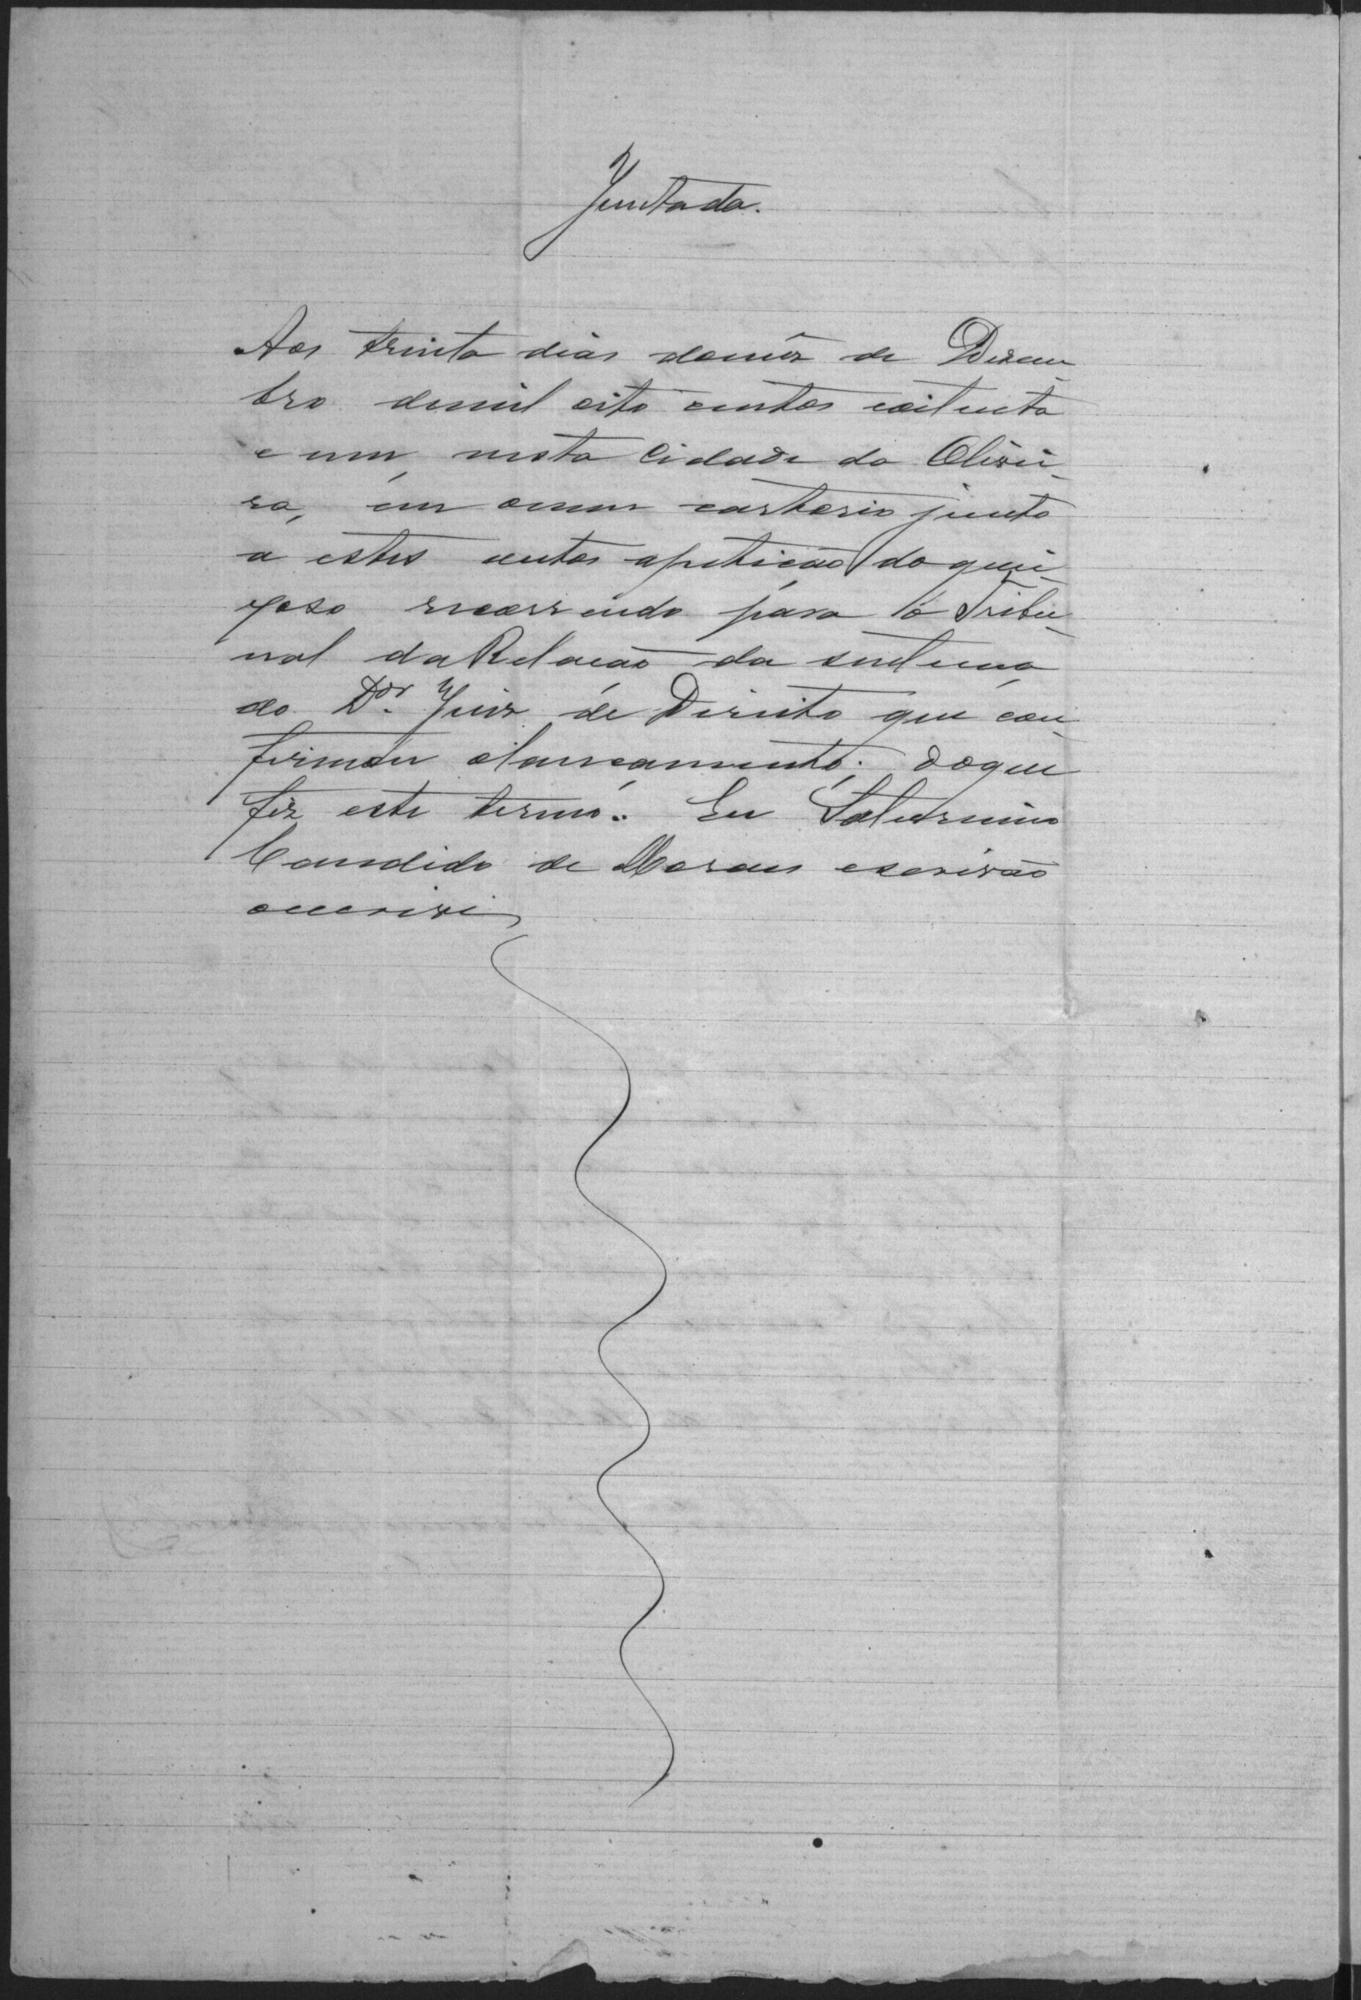 Juntada.
Aos trinta dias domêz de Dezem
bro demil oito centos eoitenta
e um, nesta Cidade da Olivei
ra, em omeu cartorio junto
a estes autos apetição do quei
xoso recorrendo para o Tribu
nal da Relação da sentença
do Dor. Juiz de Direito que con
firmou olançamento; doque
fiz este termo. Eu Saturnino
Candido de Moraes escrivão
oescrivi